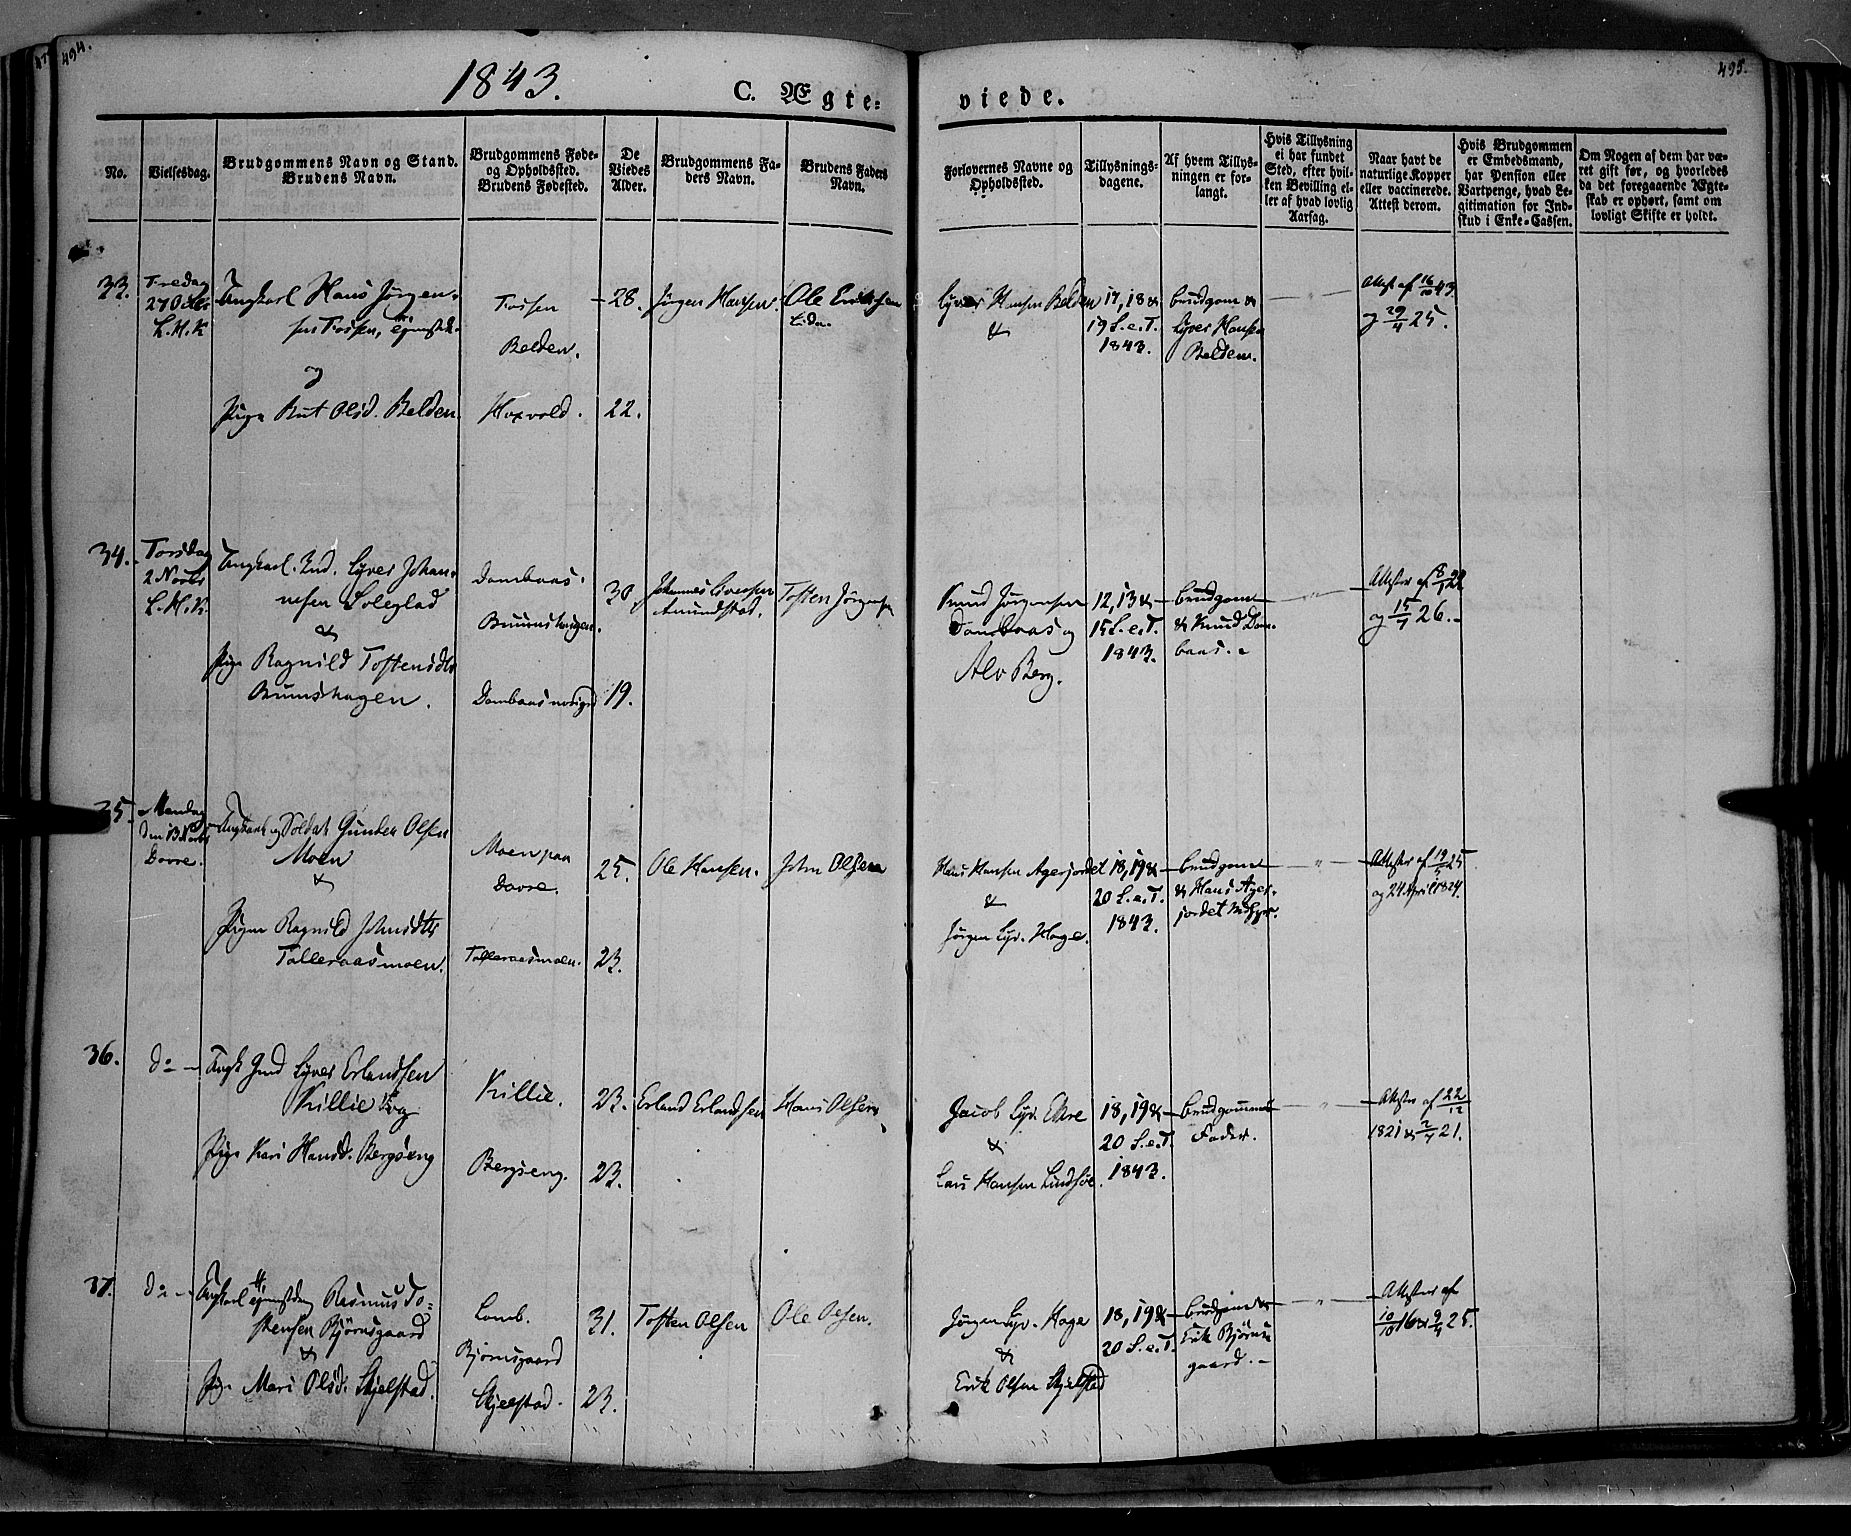 494.
495.
1843.
C. Ægte=
viede.
No.
Vielsesdag.
Brudgommens Navn og Stand.
Brudens Navn.
Brudgommens Føde-
og Opholdssted.
Brudens Fødested.
De
Viedes
Alder.
Brudgommens Fa-
ders Navn.
Brudens Faders
Navn.
Forlovernes Navne og
Opholdssted.
Tillysnings-
dagene.
Af hvem Tillys-
ningen er for-
langt.
Hvis Tillysning
ei har fundet
Sted, efter hvil-
ken Bevilling el-
ler af hvad lovlig
Aarsag.
Naar havt de
naturlige Kopper
eller vaccinerede.
Attest derom.
Hvis Brudgommen
er Embedsmand,
har Pension eller
Vartpenge, hvad Le-
gitimation for Ind-
skud i Enke-Cassen.
Om Nogen af dem har væ-
ret gift før, og hvorledes
da det foregaaende Ægte-
skab er ophørt, samt om
lovligt Skifte er holdt.
33.
Fredag
27 Octbr
L.H.K
Ungkarl Hans Jørgen-
sen Tofsen,
og
Pige Rut Olsd. Belden.
Tofsen
Belden.
Hoxvold.
28.
22.
Jørgen Hansen.
Ole Erichsen
Lyver Hansen Belden
&
17, 18 &
19 S.e.T.
1843.
brudgom &
Lyver Hansen
Belden.
Attest af 16/10 43
og 29/4 25.
34.
Torsdag
2 Novbr
L.H.K.
Ungkarl. Ind. Lyver Johan-
nesen Soleglad
&
Pige Ragnild Tostensdtr
Brunshagen.
Dombaas.
Brunshagen.
Dombaas
30
19.
Johannes Iversen
Amundstad.
Tosten Jørgensen
Knud Jørgensen
Dombaas og
Alv Berg.
12, 13 &
15 S.e.T.
1843.
brudgom
& Knud Dom-
baas.
Attester af 8/ 22
og 15/7 26.
35.
Mandag
den 13 Novbr
Dovre.
Ungkarl og Soldat Gunder Olsen
Moen
&
Pigen Ragnild Johnsdtr
Tolleraasmoen.
Moen paa
Dovre.
Tolleraasmoen.
25.
23.
Ole Hansen.
John Olsen
Hans Hansen Agerjordet
&
Jørgen Lyv. Hage.
18, 19 &
20 S.e.T.
1843.
brudgom
& Hans Ager-
jordet
Attester af 19/5 25
og 24 April 1824.
36.
Do
Ungk Lyver Erlandsen
Killie og
Pige Kari Hansd. Bergseng
Killie.
Bergseng.
23.
23.
Erland Erlandsen
Hans Olsen
Jacob Lyv. Ekre
&
Lars Hansen Lindsøe.
18, 19 &
20 S.e.T.
1843.
brudgommens
Fader.
Attester af 22/12
1821 & 2/7 21.
37.
Do
Ungkarl Rasmus To-
stensen Bjørnsgaard
&
Pige Mari Olsd. Skjelstad.
Lomb.
Bjørnsgaard
Skjelstad.
31.
23.
Tosten Olsen
Ole Olsen.
Jørgen Lyv. Hage
&
Erik Olsen Skjelstad
18, 19 &
20 S.e.T.
brudgom &
Erik Bjørns-
gaard.
Attester af
10/10 16 & 9/4 25.